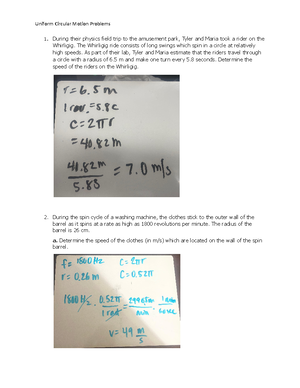 Uniform Circular Motion Problems
1. During their physics field trip to the amusement park, Tyler and Maria took a rider on the
Whirligig. The Whirligig ride consists of long swings which spin in a circle at relatively
high speeds. As part of their lab, Tyler and Maria estimate that the riders travel through
a circle with a radius of 6.5 m and make one turn every 5.8 seconds. Determine the
speed of the riders on the Whirligig.
r=6.5m
1 rev.=5.8c
C=2πr
=40.82m
40.82m
5.85
= 7.0 m/s
2. During the spin cycle of a washing machine, the clothes stick to the outer wall of the
barrel as it spins at a rate as high as 1800 revolutions per minute. The radius of the
barrel is 26 cm.
a. Determine the speed of the clothes (in m/s) which are located on the wall of the spin
barrel.
f= 1800Hz C=2πr
r=0.26m C=0.52π
1800Hz · 0.52π
V=49 m
s